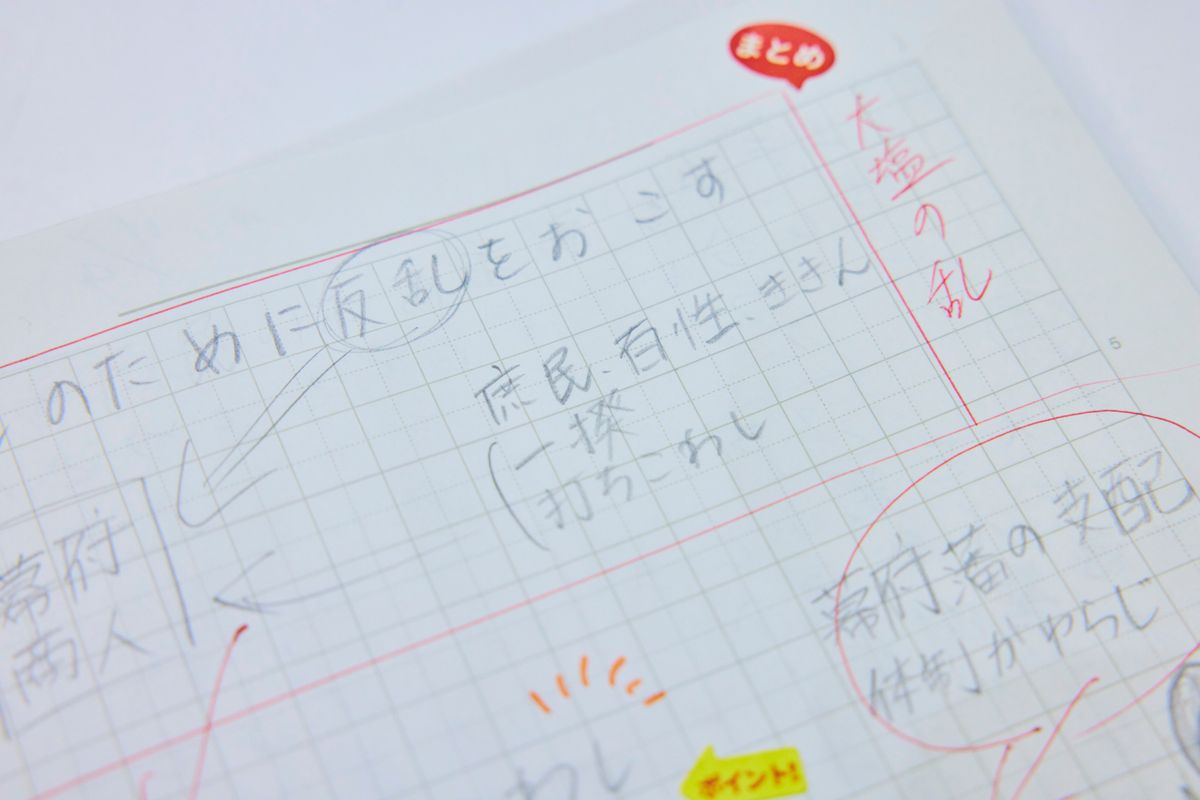 まとめ
大塩の乱
のために反乱をおこす
庶民、百性、ききん
(一揆
打ちこわし
5
幕府
商人
幕府藩の支配
体制かわらじ
わし
ポイント!